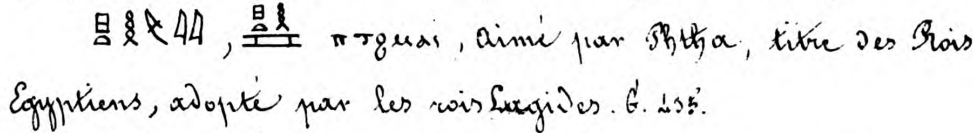 𓊪𓏏𓎛𓌸𓇋𓇋 , 𓊪𓏏𓎛𓈘 ⲡⲧϩⲙⲁⲓ , aimé par Phtha, titre des Rois
Egyptiens, adopté par les rois Lagides. G.